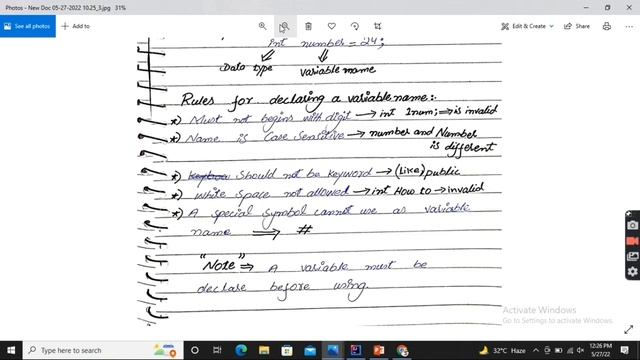 Photos - New Doc 05-27-2022 10.25_3.jpg 31%
See all photos
Edit & Create
Share
int number = 24;
Data type variable name
Rules for declaring a variable name:-
*) Must not begins with digit → int 1num; ⇒ is invalid
*) Name is Case Sensitive → number and Number
is different
*) Should not be keyword → (like) public
*) White space not allowed → int How to → invalid
*) A special symbol cannot use as variable
name ⟹ #
"Note" ⇒ A variable must be
declare before using.
Activate Windows
Go to Settings to activate Windows.
Type here to search
32°C Haze
12:26 PM
5/27/22